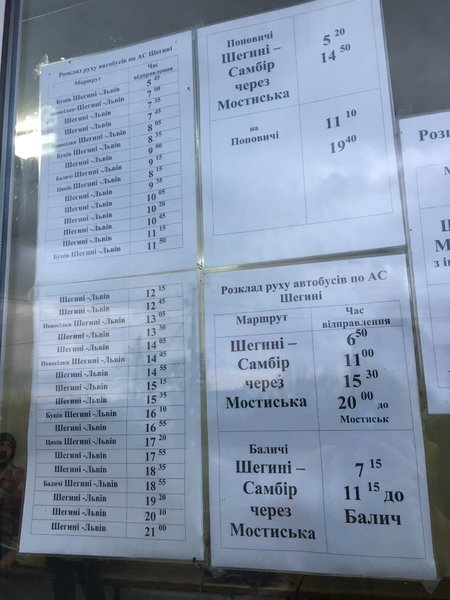 Розклад руху автобусів по АС Шегині
Маршрут Час відправлення
Бунів Шегині-Львів 5 45
Новосілки-Шегині-Львів 7 00
Шегині -Львів 7 35
Шегині -Львів 7 45
Новосілки Шегині -Львів 8 05
Бунів Шегині -Львів 8 35
Шегині -Львів 9 00
Баличі Шегині -Львів 9 15
Ціків Шегині -Львів 9 35
Шегині -Львів 10 05
Шегині -Львів 10 20
Шегині -Львів 10 45
Шегині -Львів 11 15
Бунів Шегині -Львів 11 50
Шегині -Львів 12 15
Шегині -Львів 12 45
Новосілки Шегині -Львів 13 05
Шегині -Львів 13 30
Шегині -Львів 14 05
Новосілки Шегині -Львів 14 45
Шегині -Львів 14 55
Шегині -Львів 15 15
Шегині -Львів 15 35
Бунів Шегині -Львів 16 10
Шегині -Львів 16 55
Ціків Шегині -Львів 17 20
Шегині -Львів 17 55
Шегині -Львів 18 35
Баличі Шегині -Львів 18 55
Шегині -Львів 19 20
Шегині -Львів 20 10
Шегині -Львів 21 00
Поповичі
Шегині – 5 20
Самбір 14 50
через
Мостиська
на 11 10
Поповичі 19 40
Розклад руху автобусів по АС
Шегині
Маршрут Час
відправлення
Шегині – 6 50
Самбір 11 00
через 15 30
Мостиська 20 00 до
Мостиськ
Баличі
Шегині – 7 15
Самбір 11 15 до
через Балич
Мостиська
Розкла
М
Ше
М
з і